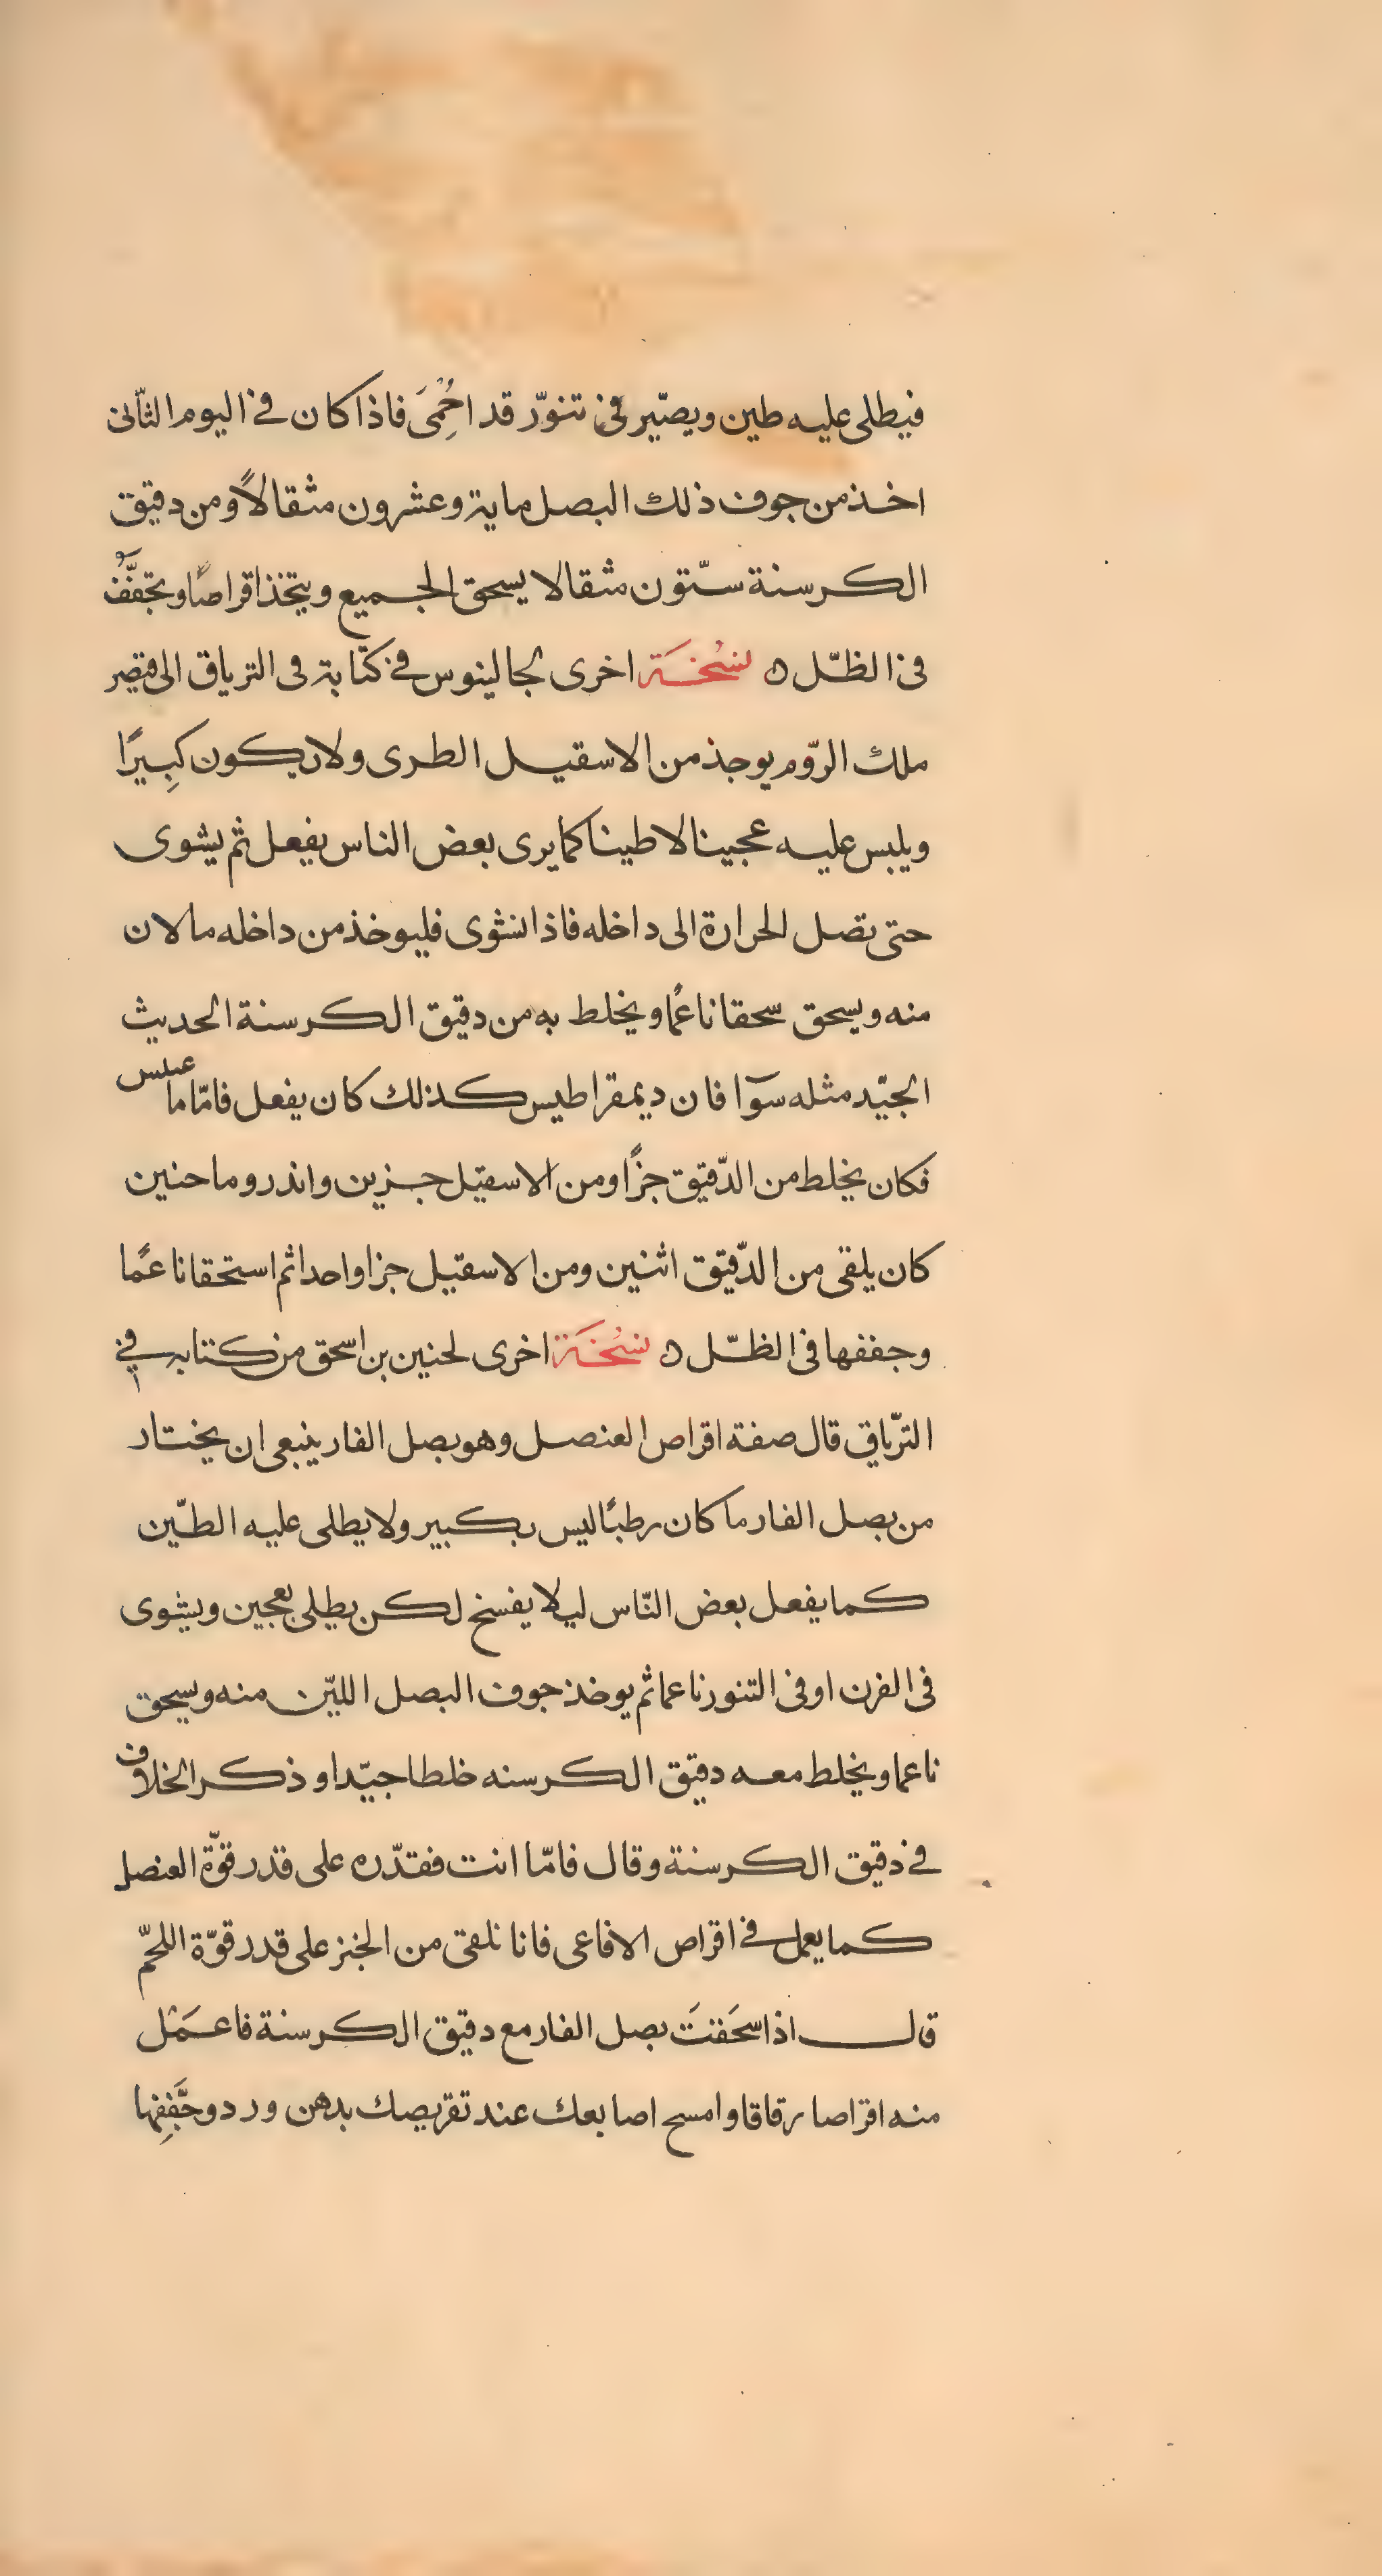 فيطلى عليه طين ويصيّر فى تنوّر قد احُمِىَ فاذا كان فى اليوم الثّانى
اخذ من جوف ذلك البصل ماية وعشرون مثقالاً ومن دقيق
الكرسنة ستّون مثقالا يسحق الجميع ويتخذ اقراصًا وتجفّفُ
فى الظّل ه نسُخَة اخرى لجالينوس فى كتابة فى الترياق الى قيصر
ملك الرّوم يوجذ من الاسقيل الطرى ولا يكون كبِيرًا
ويلبس عليه عجينا لا طينا كما يرى بعض الناس يفعل ثم يشوى
حتى تصل الحرارة الى داخله فاذا انشوى فليوخذ من داخله ما لان
منه ويسحق سحقا ناعمًا ويخلط به من دقيق الكرسنة الحديث
الجيّد مثله سوآ فان ديمقراطيس كذلك كان يفعل فامّا ما
فكان يخلط من الدّقيق جزًا ومن الاسقيل جزين واندروماحنين
كان يلقى من الدّقيق اثنين ومن الاسقيل جزا واحدا ثم استحقا ناعمًا
وجففها فى الظّل ه نسُخَة اخرى لحنين بن اسحق من كتابه فى
التّرياق قال صفة اقراص العنصل وهو بصل الفار ينبعى ان يختار
من بصل الفار ما كان رطبًا ليس بكبير ولا يطلى عليه الطّين
كما يفعل بعض النّاس ليلا يفسخ لكن يطلى بعجين ويشوى
فى الفرن او فى التنور ناعما ثم يوخذ جوف البصل الليّن منه ويسحق
ناعما ويخلط معه دقيق الكرسنه خلطا جيّدا وذكر الخلاف
فى دقيق الكرسنة وقال فامّا انت فقدّره على قدر قوّة العنصل
كما يعمل فى اقراص الافاعى فانا نلقى من الخبز على قدر قوّة اللحمّ
قال اذا سحَقتَ بصل الفار مع دقيق الكرسنة فاعمَل
منه اقراصا رقاقا وامسح اصابعك عند تقريصك بدهن ورد وجَّففِها